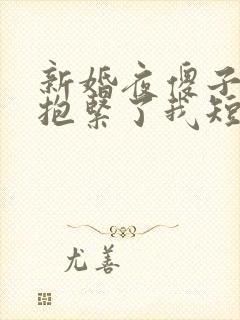 新婚夜傻子
抱緊了我短
尤善